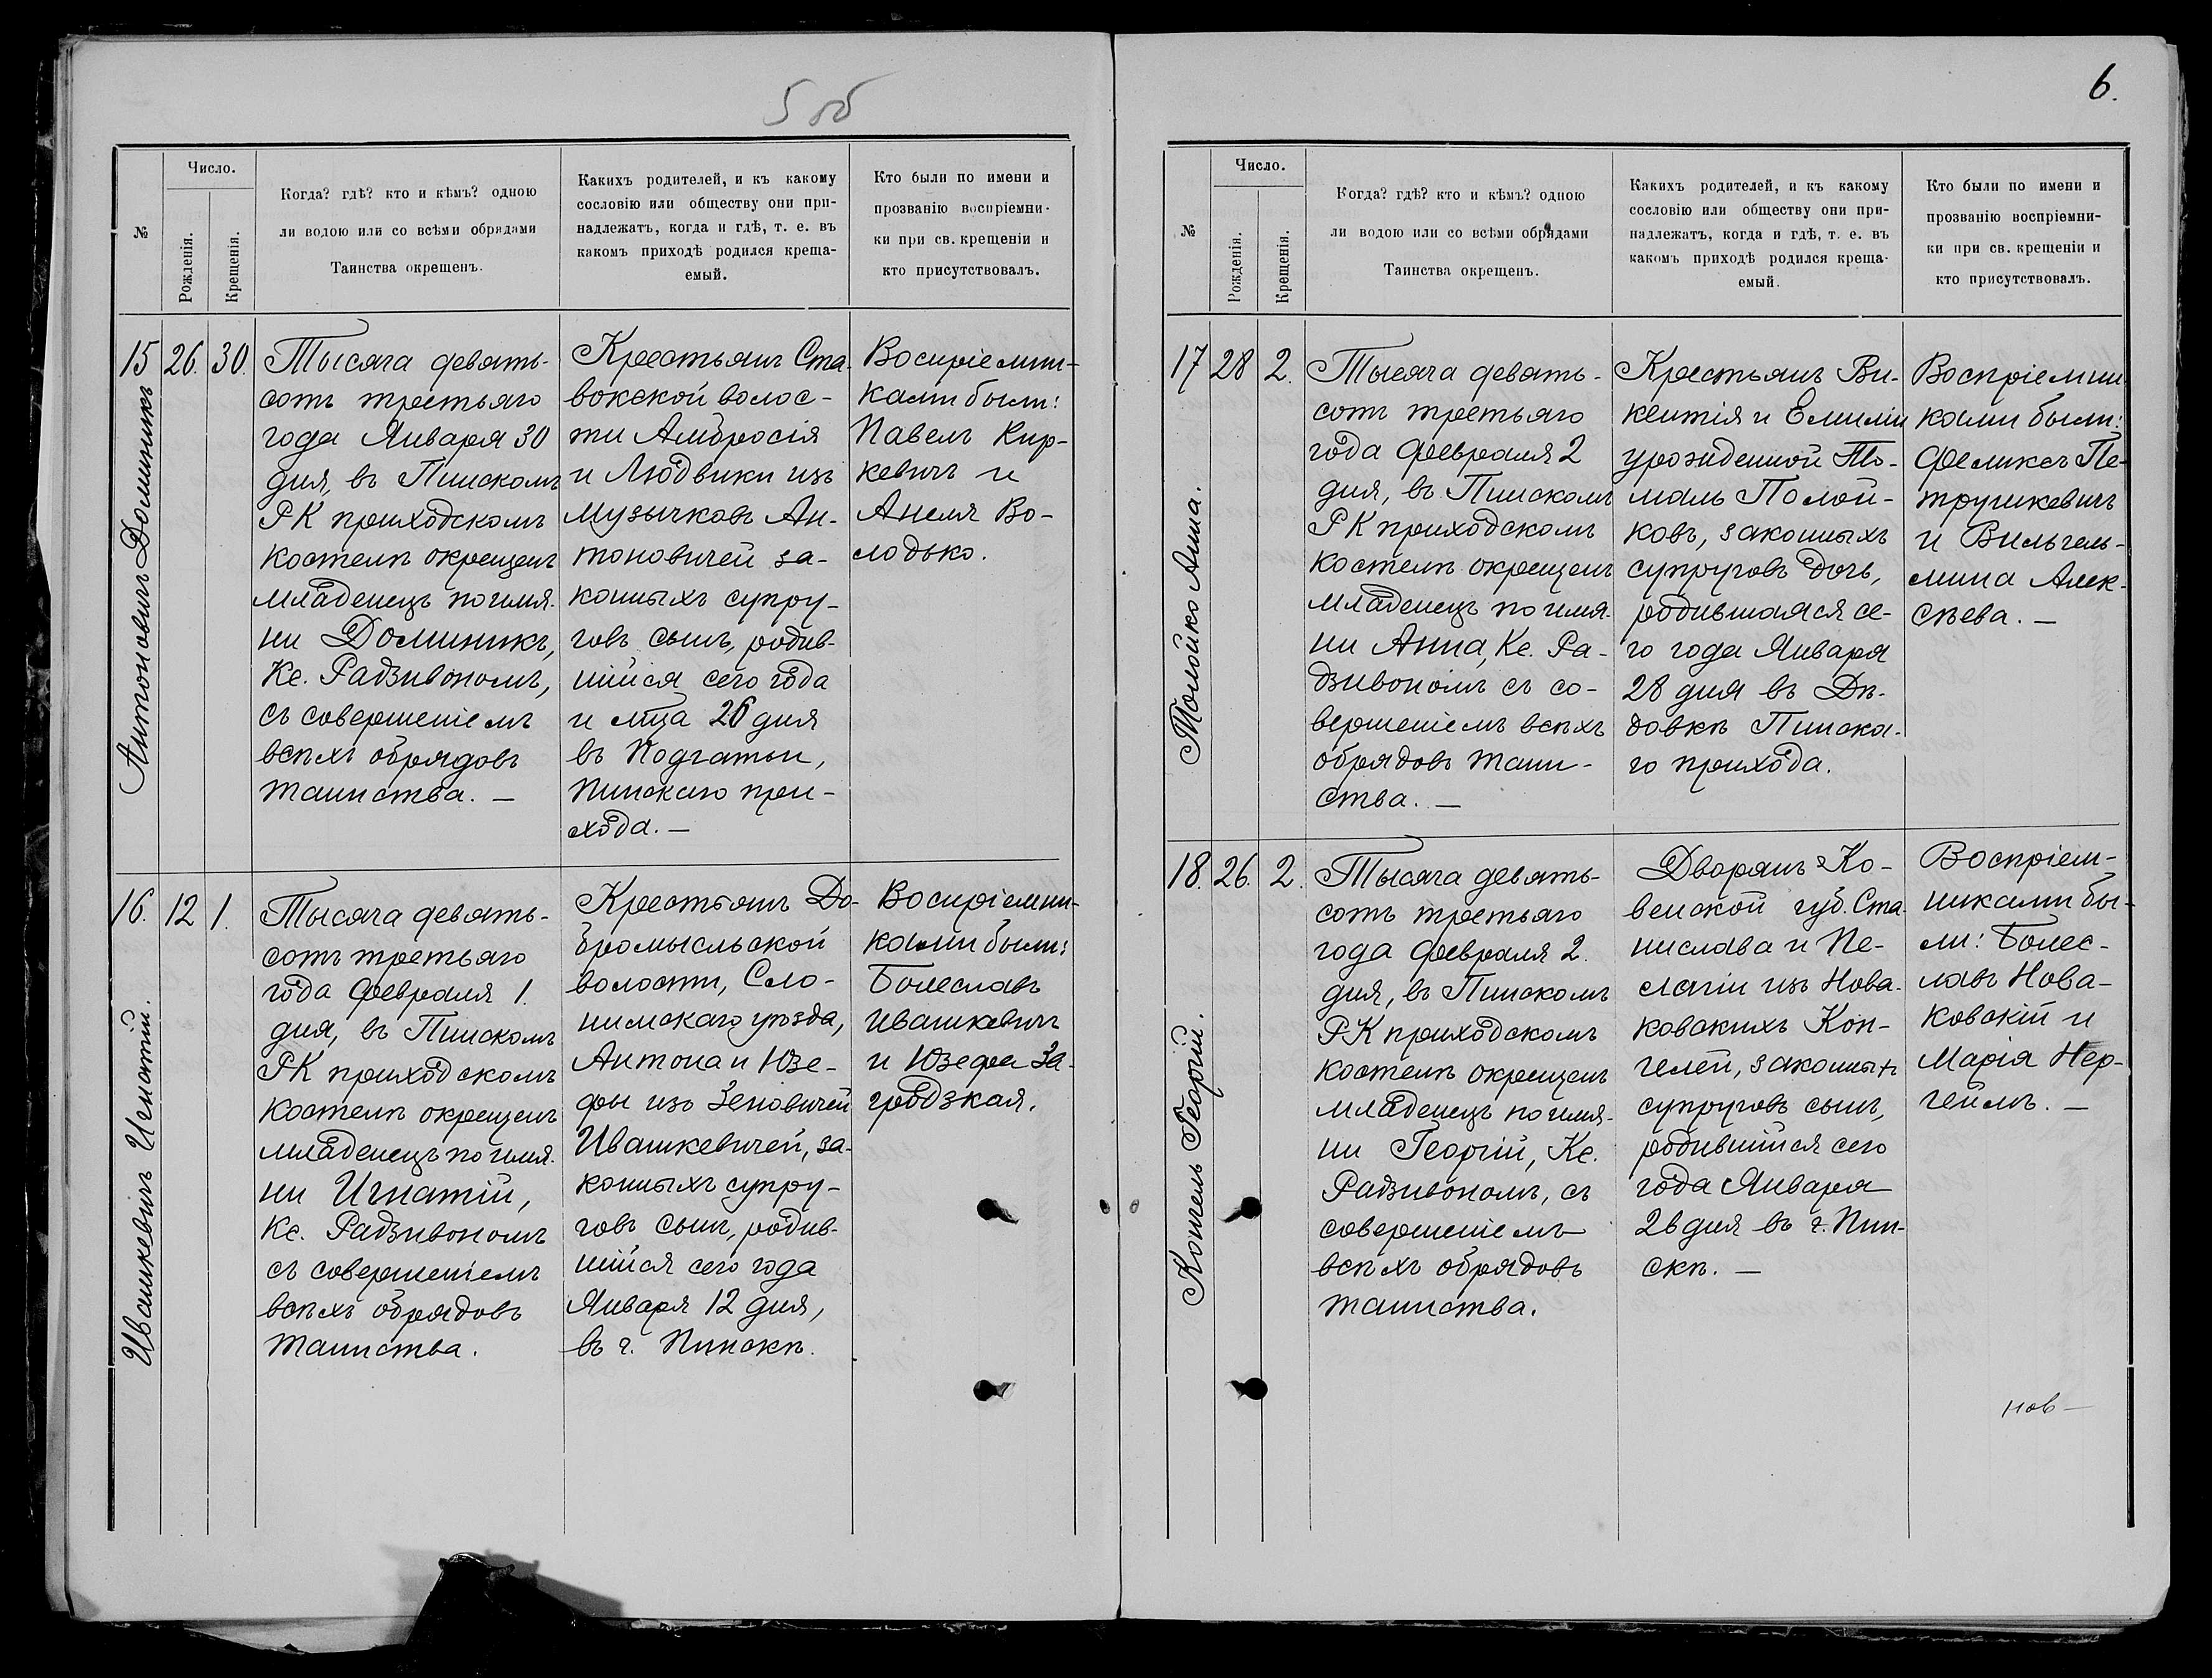 5 об
№
Число.
Рожденія.
Крещенія.
Когда? гдѣ? кто и кѣмъ? одною
ли водою или со всѣми обрядами
Таинства окрещенъ.
Какихъ родителей, и къ какому
сословію или обществу они при-
надлежатъ, когда и гдѣ, т. е. въ
какомъ приходѣ родился креща-
емый.
Кто были по имени и
прозванію воспріемни-
ки при св. крещеніи и
кто присутствовалъ.
15
26.
30.
Антоновичъ Доминикъ
Тысяча девять-
сотъ третьяго
года Января 30
дня, въ Пинскомъ
РК приходскомъ
костелѣ окрещенъ
младенецъ по имя-
ни Доминикъ,
Кс. Радзивономъ,
съ совершеніемъ
всѣхъ обрядовъ
таинства. —
Крестьянъ Ста-
вокской волос-
ти Амвросія
и Людвики изъ
Музычковъ Ан-
тоновичей за-
конныхъ супру-
говъ сынъ, родив-
шійся сего года
и мца 26 дня
въ Подгатьи,
Пинскаго при-
хода. —
Воспріемни-
ками были:
Павелъ Кир-
кевичъ и
Анеля Во-
лодько.
16.
12
1.
Ивашкевичъ Игнатій.
Тысяча девять-
сотъ третьяго
года Февраля 1.
дня, въ Пинскомъ
РК приходскомъ
костелѣ окрещенъ
младенецъ по имя-
ни Игнатій,
Кс. Радзивономъ
съ совершеніемъ
всѣхъ обрядовъ
таинства.
Крестьянъ До-
бромысльской
волости, Сло-
нимскаго уѣзда,
Антона и Юзе-
фы изъ Зеновичей
Ивашкевичей, за-
конныхъ супру-
говъ сынъ, родив-
шійся сего года
Января 12 дня,
въ г. Пинскѣ.
Воспріемни-
ками были:
Болеславъ
Ивашкевичъ
и Юзефа За-
гродзкая.
6.
№
Число.
Рожденія.
Крещенія.
Когда? гдѣ? кто и кѣмъ? одною
ли водою или со всѣми обрядами
Таинства окрещенъ.
Какихъ родителей, и къ какому
сословію или обществу они при-
надлежатъ, когда и гдѣ, т. е. въ
какомъ приходѣ родился креща-
емый.
Кто были по имени и
прозванію воспріемни-
ки при св. крещеніи и
кто присутствовалъ.
17
28
2.
Толойко Анна.
Тысяча девять-
сотъ третьяго
года Февраля 2
дня, въ Пинскомъ
РК приходскомъ
костелѣ окрещенъ
младенецъ по имя-
ни Анна, Кс. Ра-
дзивономъ съ со-
вершеніемъ всѣхъ
обрядовъ таин-
ства. —
Крестьянъ Ви-
кентія и Емиліи
урожденной
Толой-
ковъ, законныхъ
супруговъ дочь,
родившаяся се-
го года Января
28 дня въ Дѣ-
довкѣ Пинска-
го прихода.
Воспріемни-
ками были:
Феликсъ Пе-
трушкевичъ
и Вильгель-
мина Алек-
сѣева. —
18.
26.
2.
Конгель Георгій.
Тысяча девять-
сотъ третьяго
года Февраля 2.
дня, въ Пинскомъ
РК приходскомъ
костелѣ окрещенъ
младенецъ по имя-
ни Георгій, Кс.
Радзивономъ, съ
совершеніемъ
всѣхъ обрядовъ
таинства.
Дворянъ Ко-
венской губ. Ста-
нислава и Пе-
лагіи изъ Нова-
ковскихъ Кон-
гелей, законных
супруговъ сынъ,
родившійся сего
года Января
26 дня въ г. Пин-
скѣ. —
Воспріем-
никами бы-
ли: Болес-
лавъ Нова-
ковскій и
Марія Нер-
геймъ. —
нов —